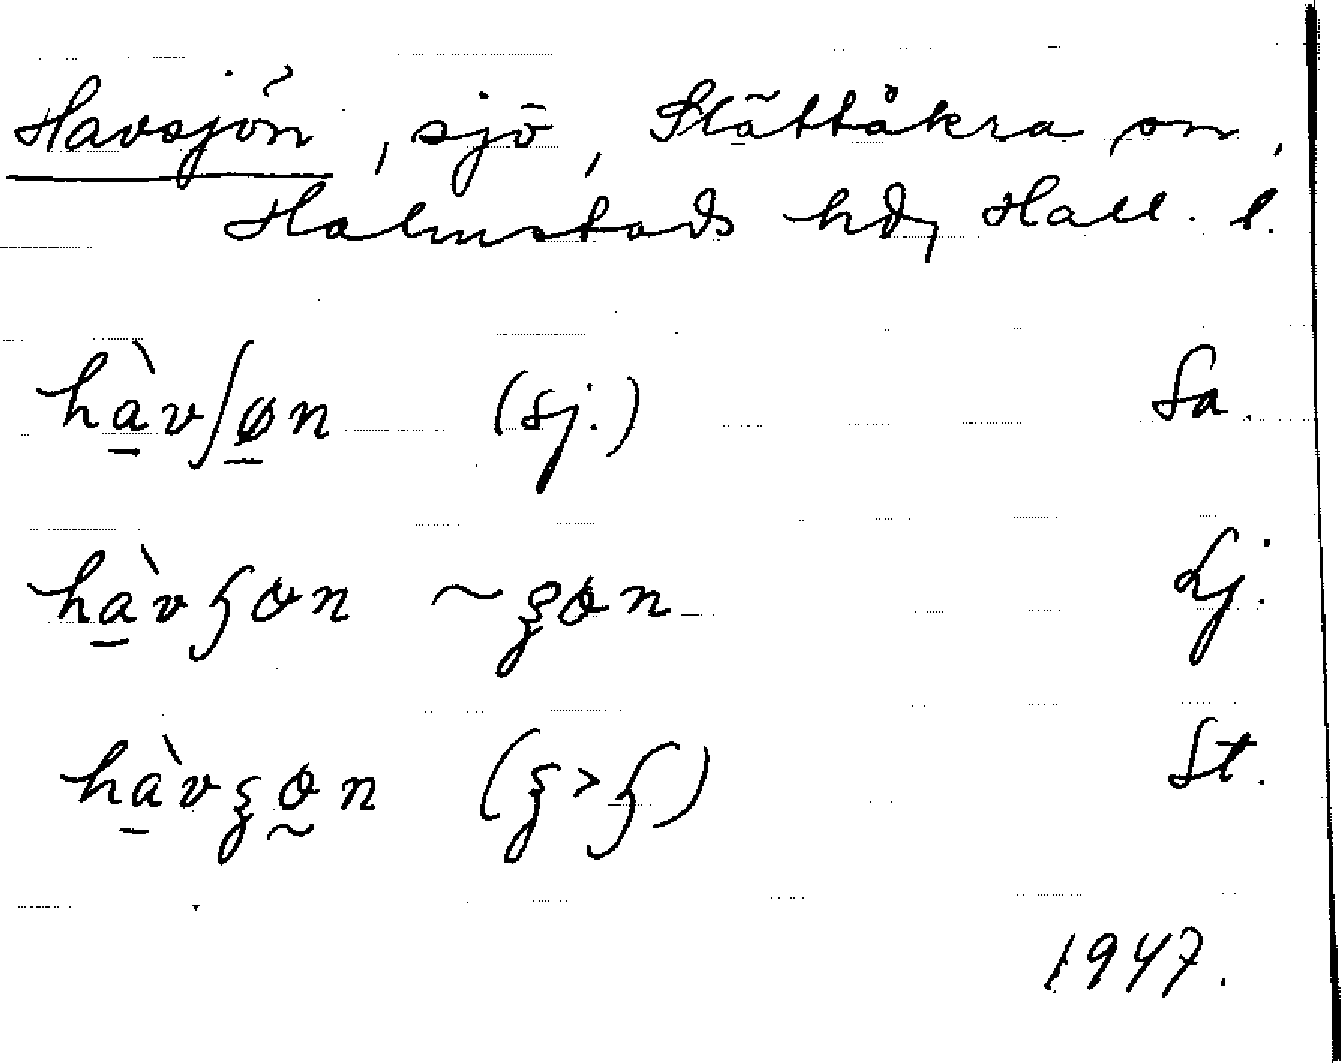 Havsjön, sjö, Slättåkra sn,
Halmstads hd, Hall. l.
hàvʃøn (sj.) Sa.
hàvɧɵn ~ʂɵn Lj.
hàvʂɵn (ʂ>ɧ) St.
1947.